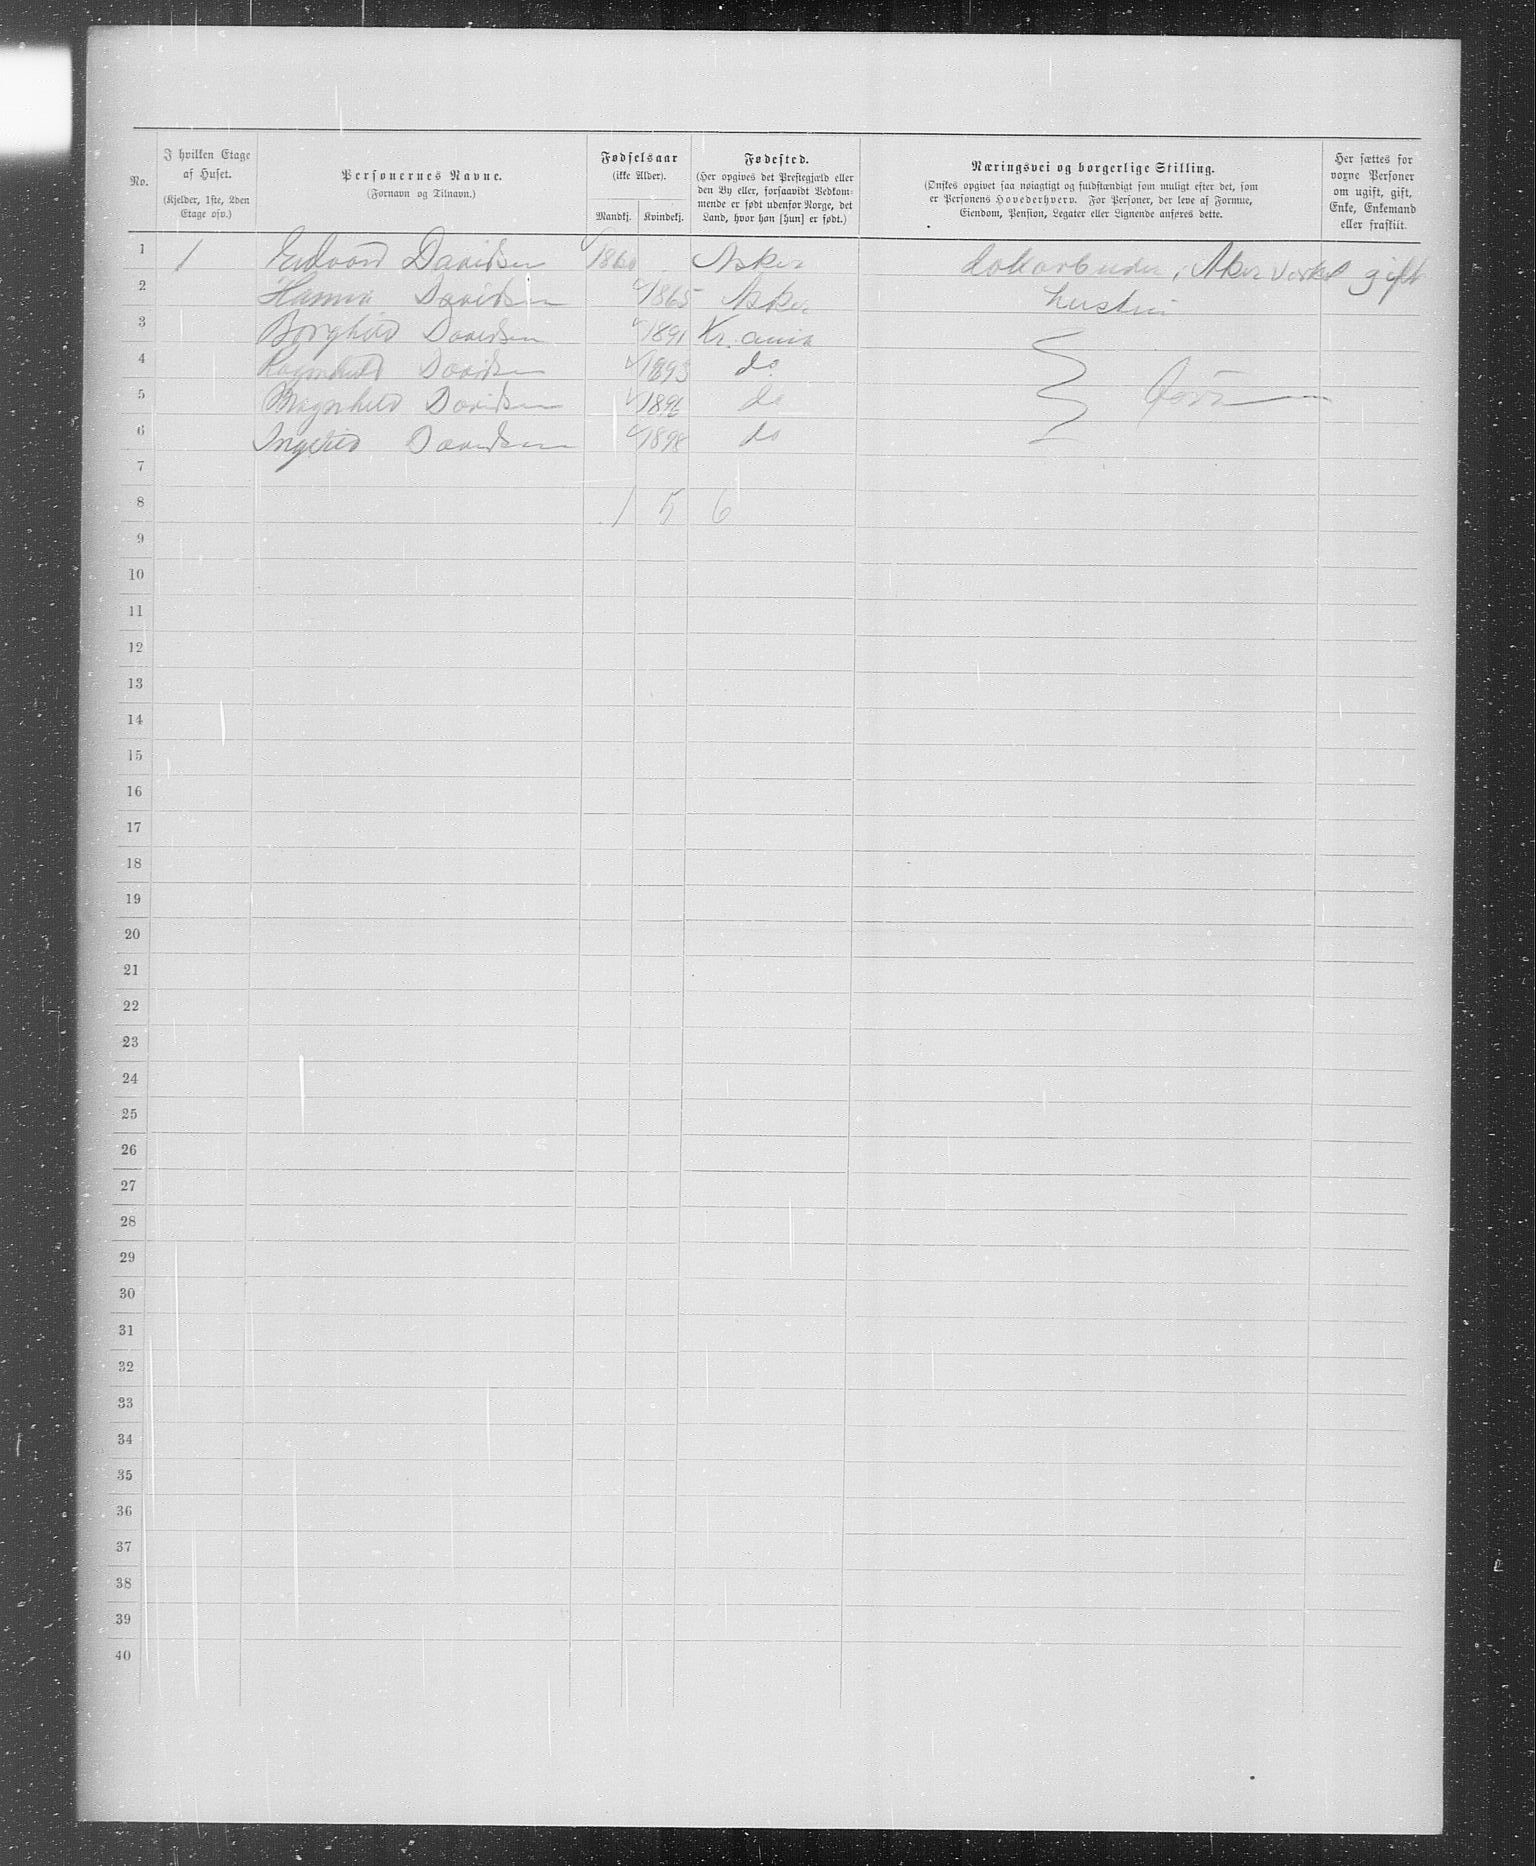 No.
I hvilken Etage af Huset.
(Kjelder, 1ste, 2den Etage osv.)
Personernes Navne.
(Fornavn og Tilnavn.)
Fødselsaar
(ikke Alder).
Mandkj. Kvindekj.
Fødested.
(Her opgives det Prestegjæld eller
den By eller, forsaavidt Vedkom-
mende er født udenfor Norge, det
Land, hvor han [hun] er født.)
Næringsvei og borgerlige Stilling.
(Ønskes opgivet saa nøiagtigt og fuldstændigt som muligt efter det, som
er Personens Hovederhverv. For Personer, der leve af Formue,
Eiendom, Pension, Legater eller Lignende anføres dette.
Her sættes for
voxne Personer
om ugift, gift,
Enke, Enkemand
eller fraskilt.
1 1 Edvard Davidsen 1860 Asker Dokarbeider, Aker Verksted gift
2 Hanna Davidsen 1865 Asker hustru
3 Borghild Davidsen 1891 Kr.ania
4 Ragnhild Davidsen 1893 do
5 Magnhild Davidsen 1896 do
6 Ingrid Davidsen 1898 do
7
8 1 5 6
9
10
11
12
13
14
15
16
17
18
19
20
21
22
23
24
25
26
27
28
29
30
31
32
33
34
35
36
37
38
39
40